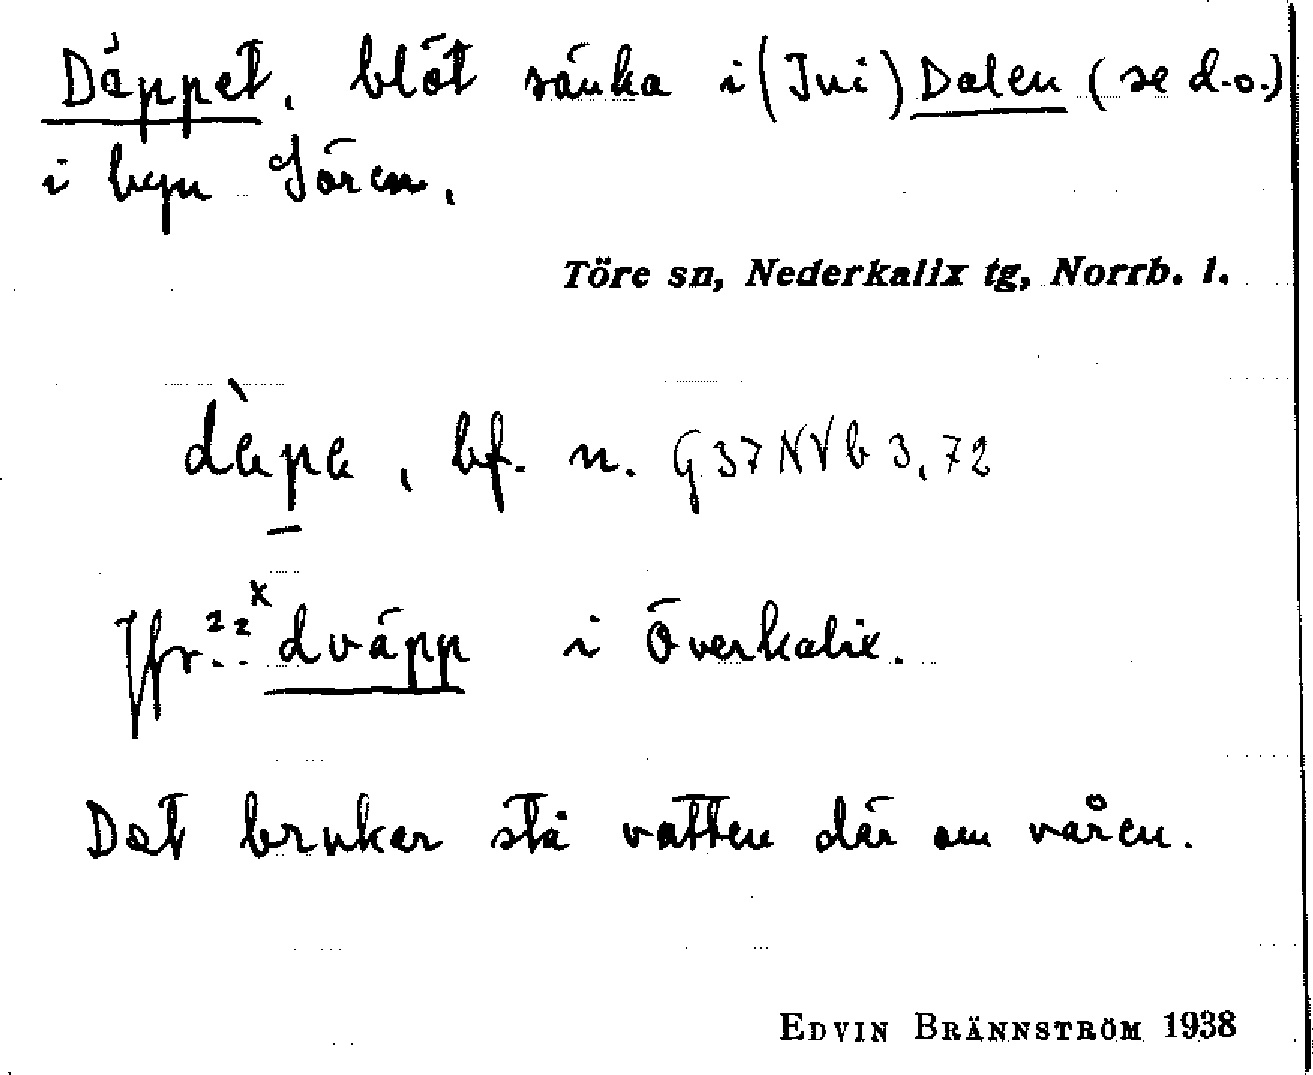 Däppet, blöt sänka i (Ini) Dalen (se d.o.)
i byn Sören.
Töre sn, Nederkalix tg, Norrb. l.
dὰpα, bf. n. G 37 NVb 3,72
Jfr ?? x dväpp i Överkalix.
Det brukar stå vatten där om våren.
EDVIN BRÄNNSTRÖM 1938